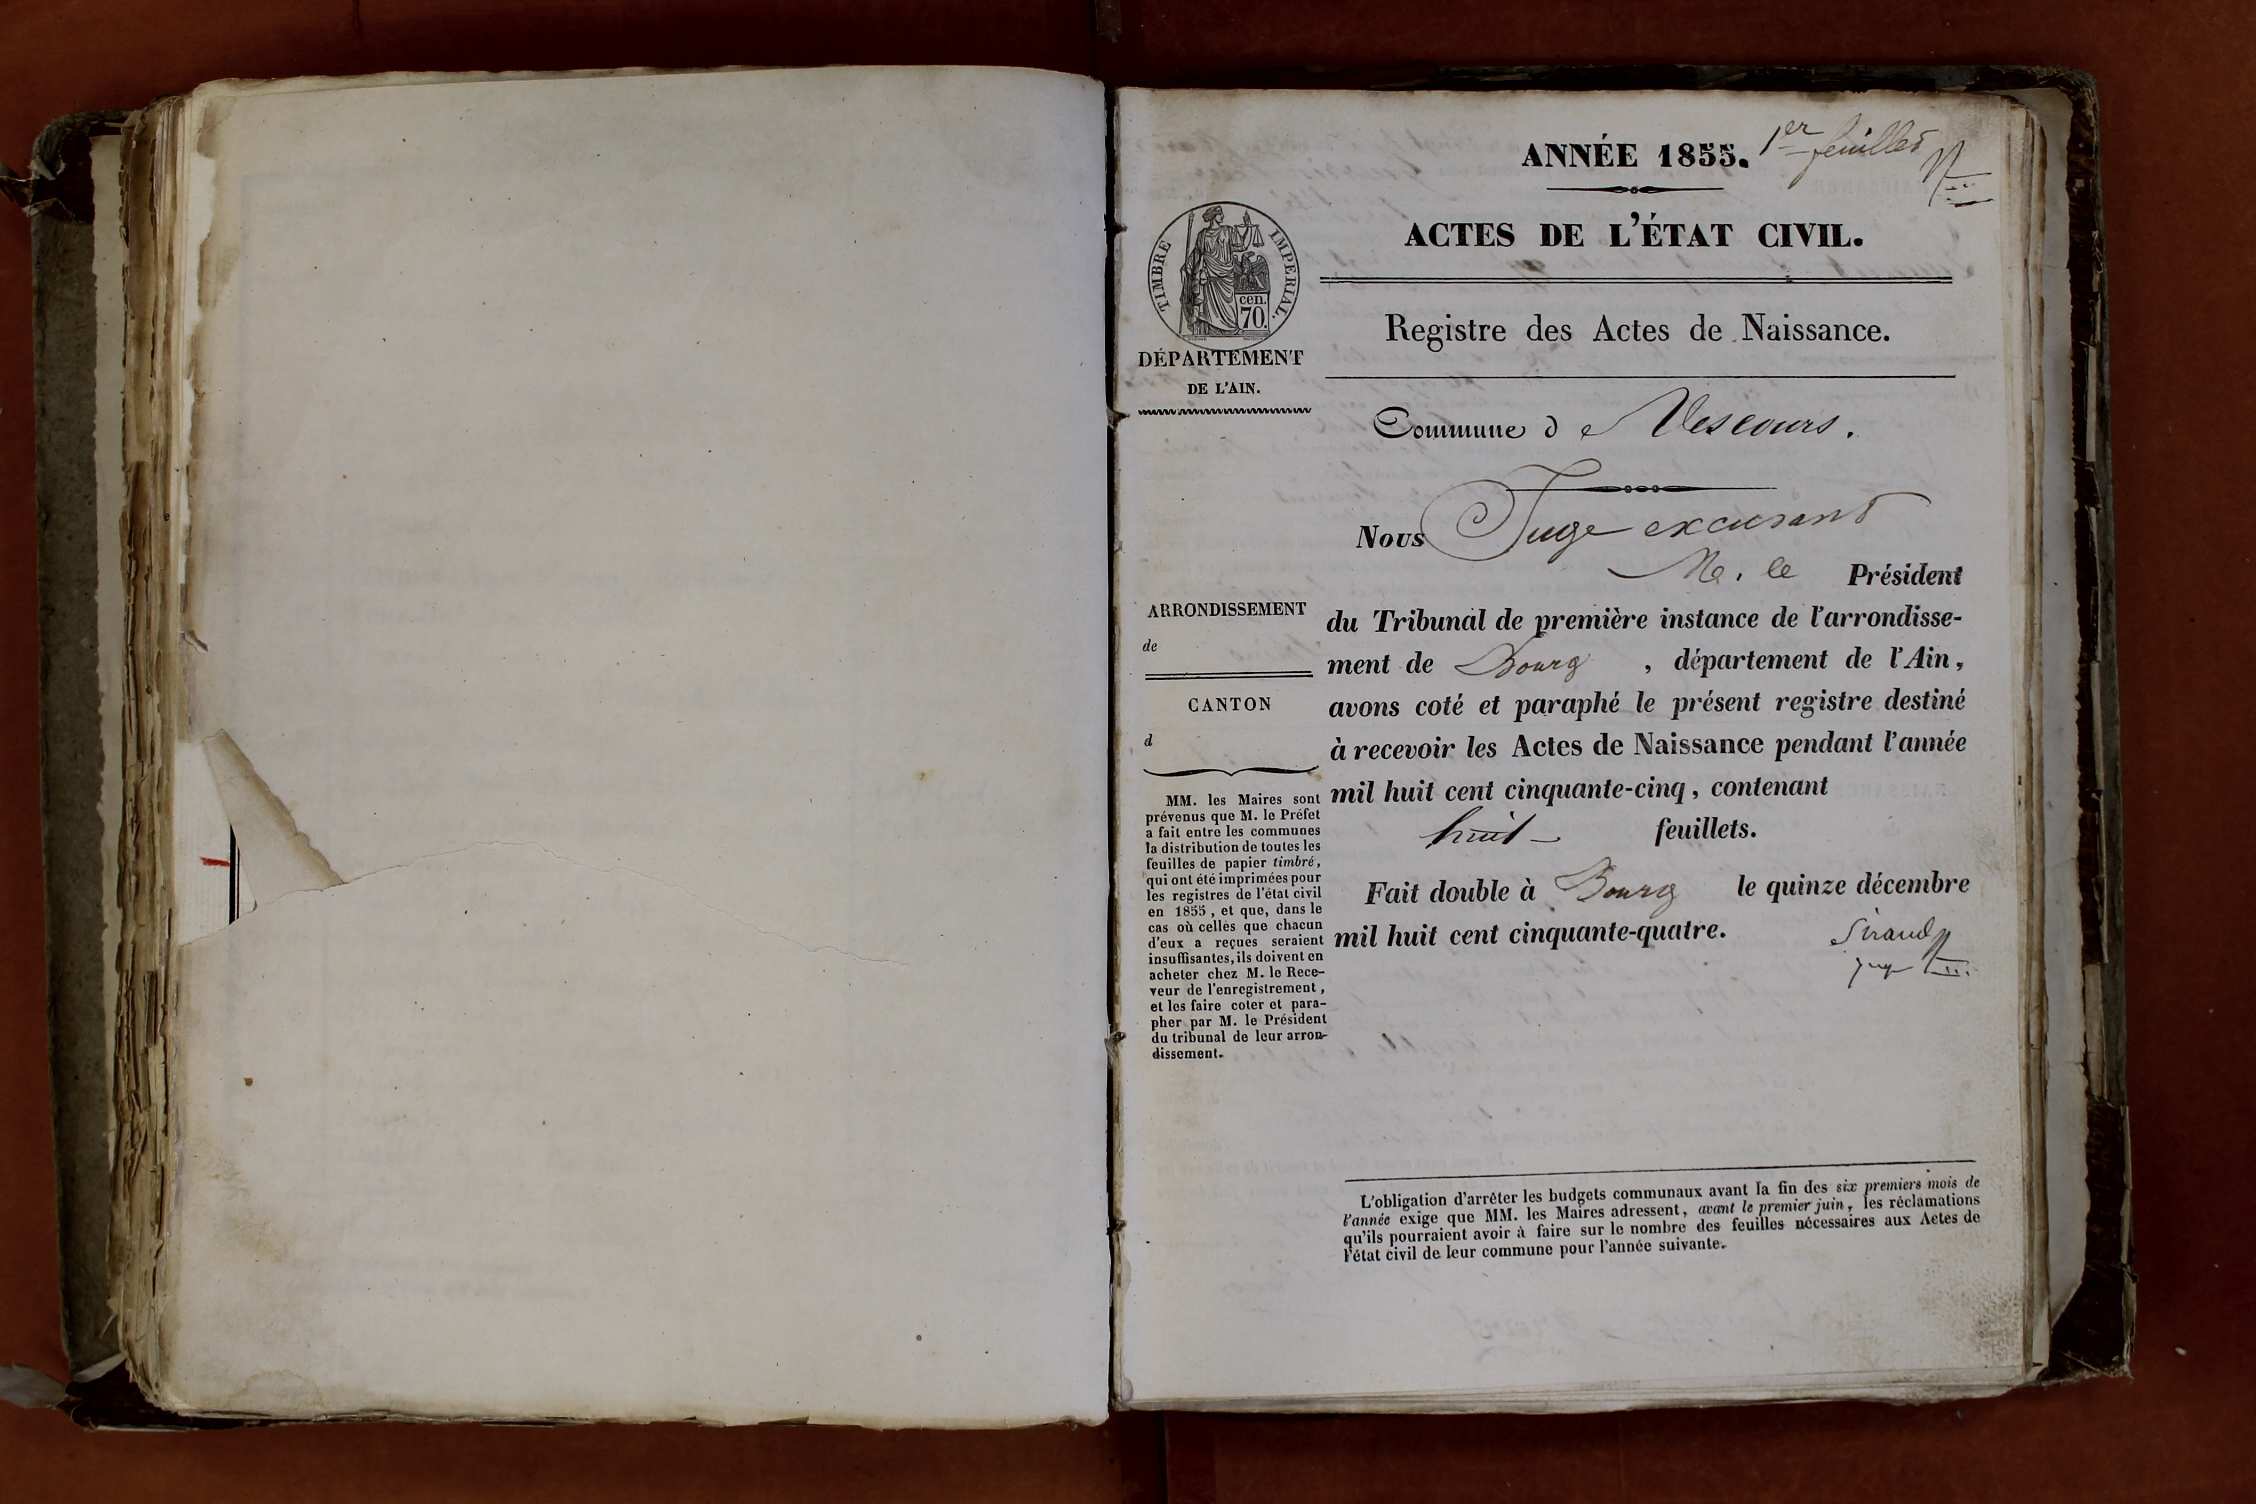 ANNÉE 1855.
1er feuillet
ACTES DE L'ÉTAT CIVIL.
TIMBRE IMPERIAL.
cen.
70.
DÉPARTEMENT
DE L'AIN.
Registre des Actes de Naissance.
Commune de Vescours.
Nous Juge excusant
M. le Président
du Tribunal de première instance de l'arrondisse-
ment de Bourg, département de l'Ain,
avons coté et paraphé le présent registre destiné
à recevoir les Actes de Naissance pendant l'année
mil huit cent cinquante-cinq, contenant
huit feuillets.
Fait double à Bourg le quinze décembre
mil huit cent cinquante-quatre.
Siraud
juge
ARRONDISSEMENT
de
CANTON
d
MM. les Maires sont
prévenus que M. le Préfet
a fait entre les communes
la distribution de toutes les
feuilles de papier timbré,
qui ont été imprimées pour
les registres de l'état civil
en 1855, et que, dans le
cas où celles que chacun
d'eux a reçues seraient
insuffisantes, ils doivent en
acheter chez M. le Rece-
veur de l'enregistrement,
et les faire coter et para-
pher par M. le Président
du tribunal de leur arron-
dissement.
L'obligation d'arrêter les budgets communaux avant la fin des six premiers mois de
l'année exige que MM. les Maires adressent, avant le premier juin, les réclamations
qu'ils pourraient avoir à faire sur le nombre des feuilles nécessaires aux Actes de
l'état civil de leur commune pour l'année suivante.